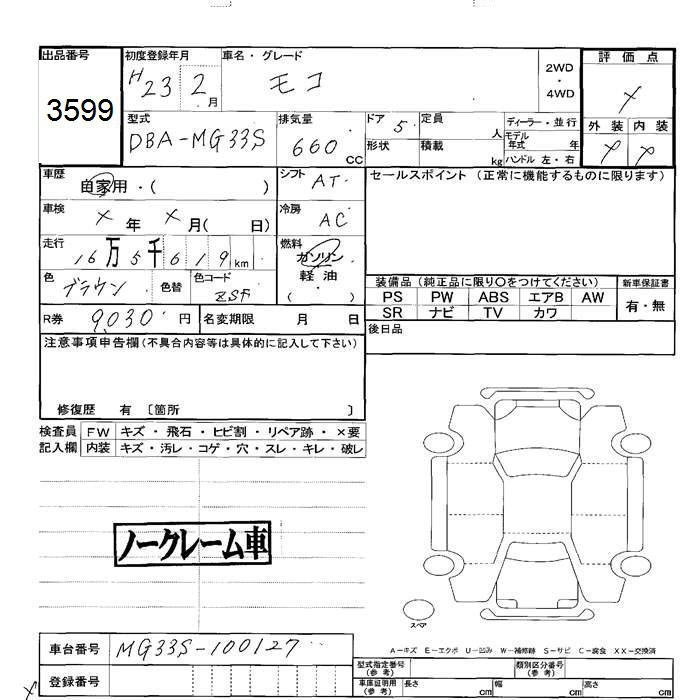 出品番号
3599
初度登録年月
H23 2月
車名・グレード
モコ
2WD
・
4WD
評価点
型式
DBA-MG33S
排気量
660cc
ドア 5
形状
定員 人
積載 kg
ディーラー・並行
モデル年式 年
ハンドル 左・右
外装 内装
車歴
自家用・( )
シフト AT
セールスポイント (正常に機能するものに限ります)
車検
×年 ×月( 日)
冷房 AC
走行
16万5千619km
燃料
ガソリン
軽油
( )
色
ブラウン
色替
色コード
ZSF
装備品(純正品に限り○をつけてください)
PS PW ABS エアB AW
SR ナビ TV カワ
新車保証書
有・無
R券 9030円
名変期限 月 日
後日品
注意事項申告欄(不具合内容等は具体的に記入して下さい)
修復歴 有〔箇所 〕
検査員記入欄
FW キズ・飛石・ヒビ割・リペア跡・×要
内装 キズ・汚レ・コゲ・穴・スレ・キレ・破レ
ノークレーム車
スペア
A-キズ E-エクボ U-凹み W-補修跡 S-サビ C-腐食 XX-交換済
車台番号 MG33S-100127
登録番号
型式指定番号(参考)
類別区分番号(参考)
車庫証明用(参考) 長さ cm 幅 cm 高さ cm